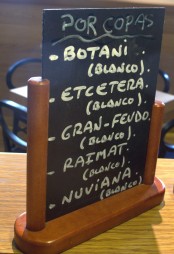 POR COPAS
- BOTANI.
(BLANCO).
- ETCETERA.
(BLANCO).
- GRAN-FEUDO.
(BLANCO).
- RAIMAT.
(BLANCO).
- NUVIANA.
(BLANCO)